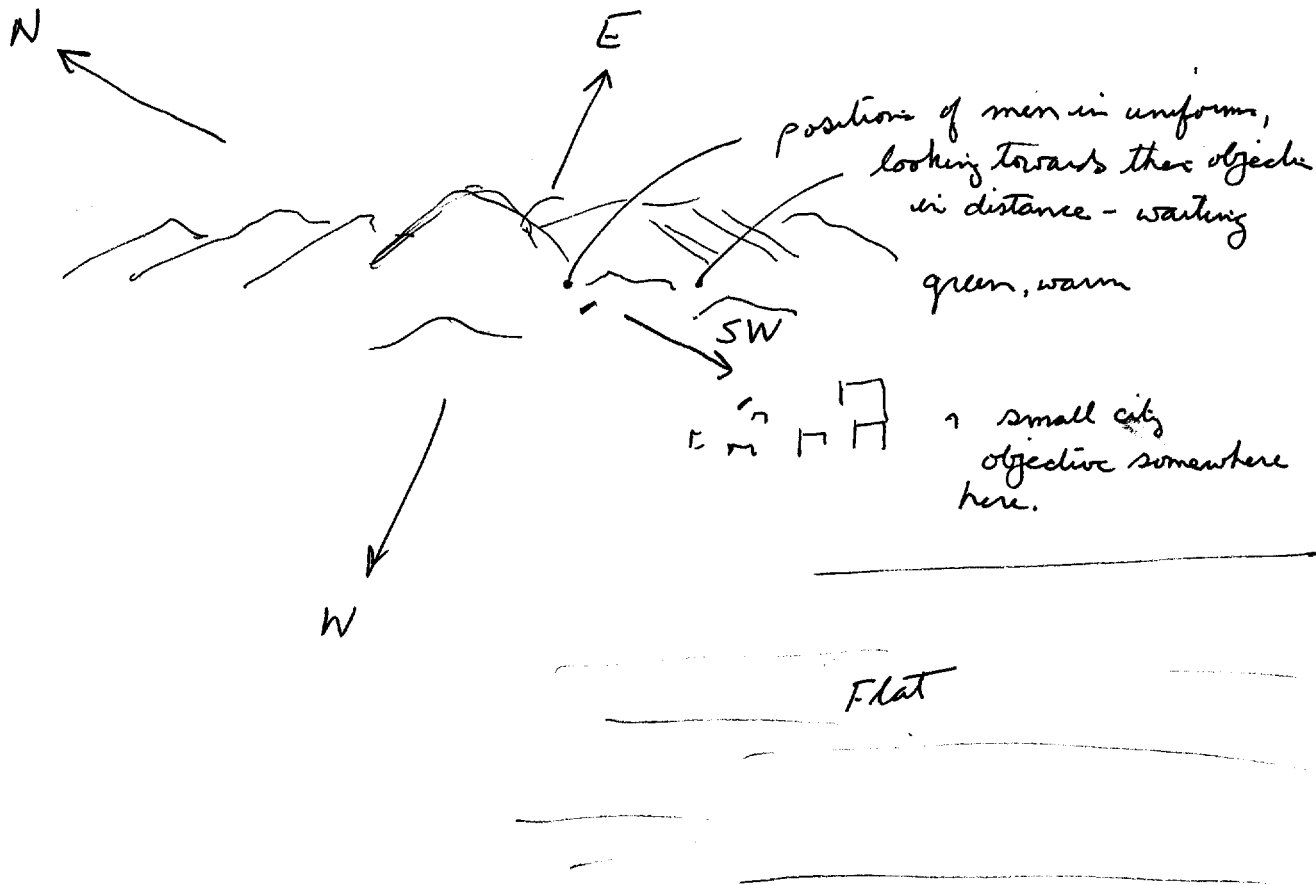 N
E
positions of men in uniforms,
looking towards their objective
in distance - waiting
green, warm
SW
small city
objective somewhere
here.
W
Flat